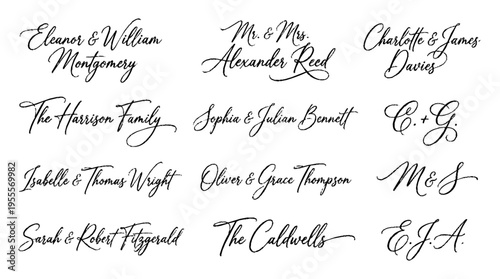 Eleanor & William
Montgomery
Mr. & Mrs.
Alexander Reed
Charlotte & James
Davies
The Harrison Family
Sophia & Julian Bennett
C. + G.
Isabelle & Thomas Wright
Oliver & Grace Thompson
M & S
Sarah & Robert Fitzgerald
The Caldwells
E.J.A.
Adobe Stock | #1955569982